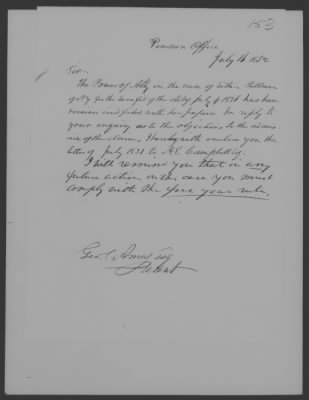 153
Pension Office
July 16 1852
Sir.
The Power of Atty in the case of
of N.Y. for the benefit of the act of July 4 1836 has been
received and filed with her papers. In reply to
your enquiry as to the objections to the admis
of the claim, I herewith enclose you the
letter of July 1851 to Campbell Esq.
I will remind you that in any
future action in the case you must
comply with the five year rule.
Geo. C. Ames Esq